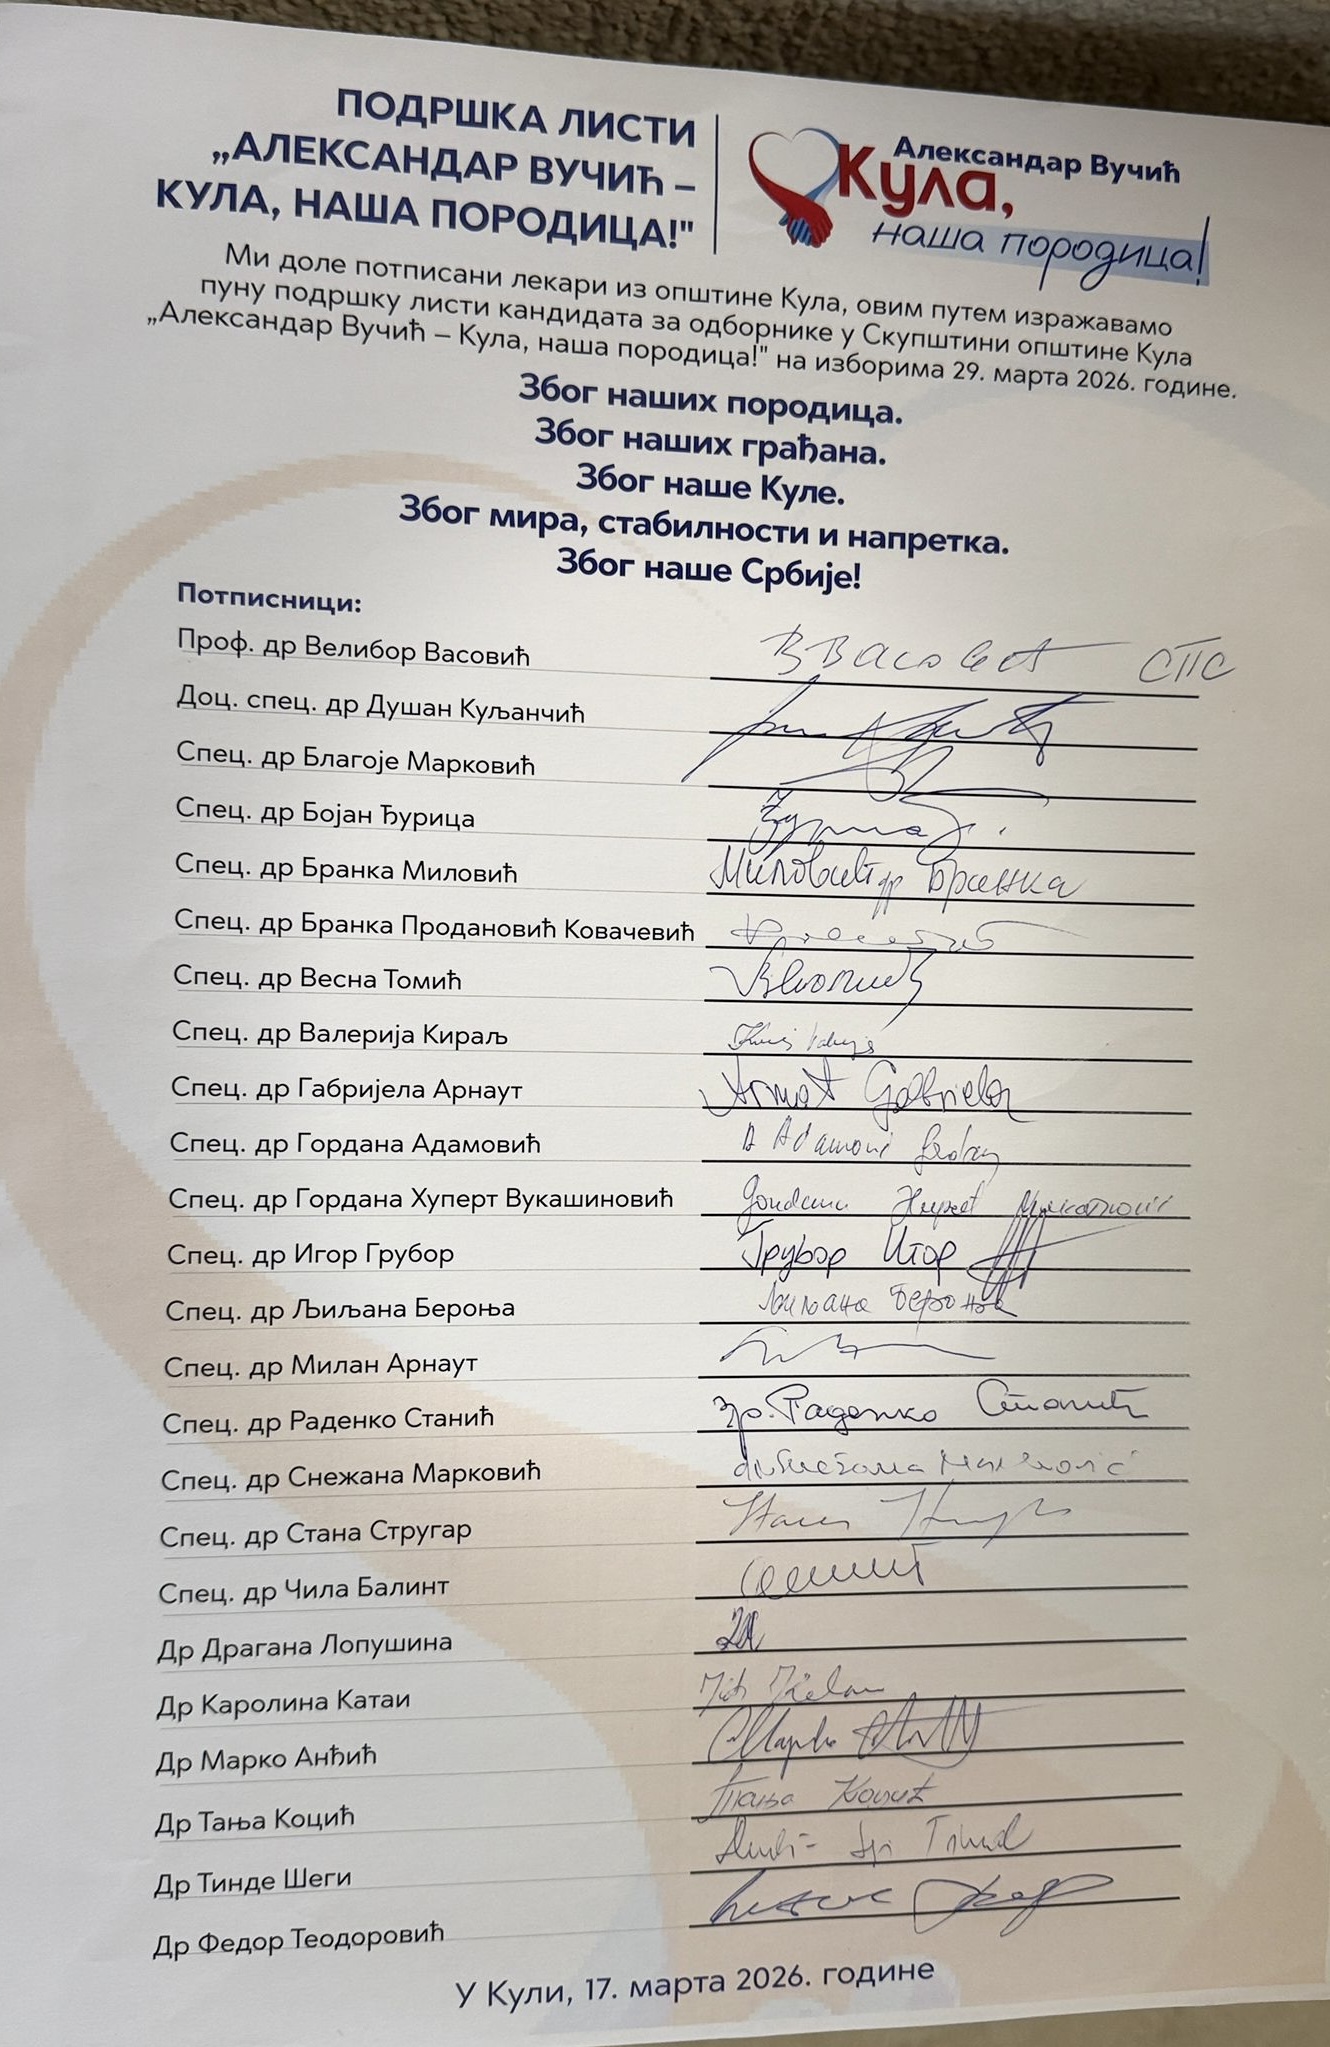 ПОДРШКА ЛИСТИ
„АЛЕКСАНДАР ВУЧИЋ –
КУЛА, НАША ПОРОДИЦА!"
Александар Вучић
Кула,
наша породица!
Ми доле потписани лекари из општине Кула, овим путем изражавамо
пуну подршку листи кандидата за одборнике у Скупштини општине Кула
„Александар Вучић – Кула, наша породица!" на изборима 29. марта 2026. године.
Због наших породица.
Због наших грађана.
Због наше Куле.
Због мира, стабилности и напретка.
Због наше Србије!
Потписници:
Проф. др Велибор Васовић СПС
Доц. спец. др Душан Куљанчић
Спец. др Благоје Марковић
Спец. др Бојан Ђурица
Спец. др Бранка Миловић Миловић др Бранка
Спец. др Бранка Продановић Ковачевић
Спец. др Весна Томић
Спец. др Валерија Кираљ
Спец. др Габријела Арнаут Arnaut Gabriela
Спец. др Гордана Адамовић
Спец. др Гордана Хуперт Вукашиновић
Спец. др Игор Грубор Грубор Игор
Спец. др Љиљана Бероња Љиљана Бероња
Спец. др Милан Арнаут
Спец. др Раденко Станић др. Раденко Станић
Спец. др Снежана Марковић
Спец. др Стана Стругар
Спец. др Чила Балинт
Др Драгана Лопушина
Др Каролина Катаи
Др Марко Анђић
Др Тања Коцић Тања Коцић
Др Тинде Шеги
Др Федор Теодоровић
У Кули, 17. марта 2026. године